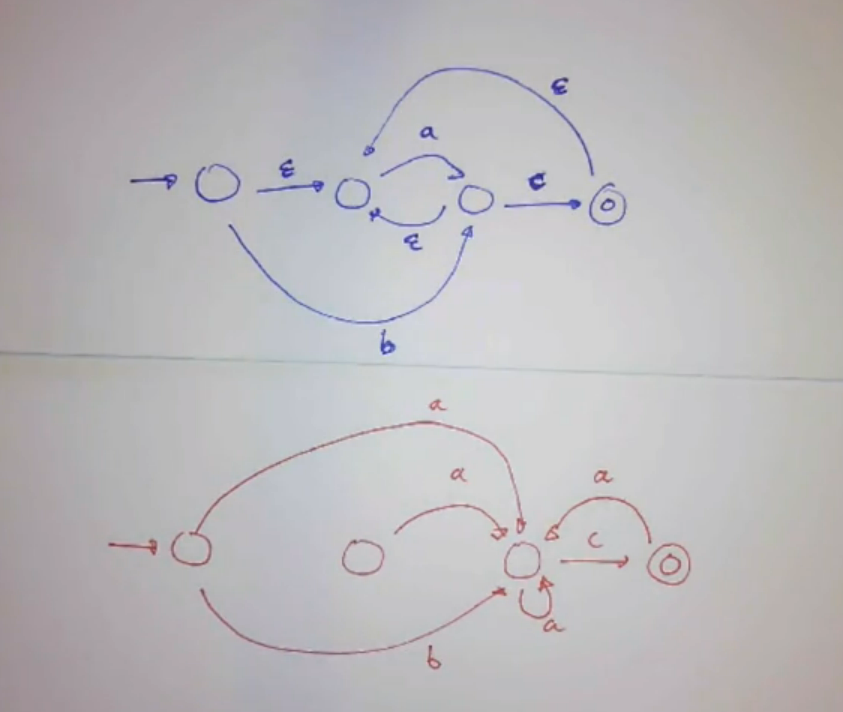 ε
ε
a
c
ε
b
a
a
a
c
a
b